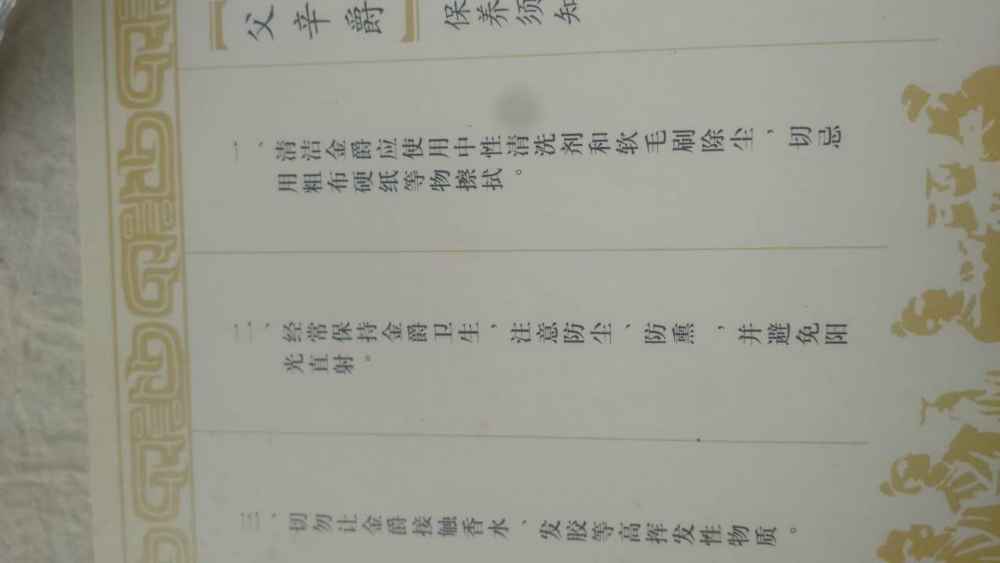 【父辛爵】保养须知
一、清洁金爵应使用中性清洗剂和软毛刷除尘，切忌
用粗布硬纸等物擦拭。
二、经常保持金爵卫生，注意防尘、防熏，并避免阳
光直射。
三、切勿让金爵接触香水、发胶等高挥发性物质。